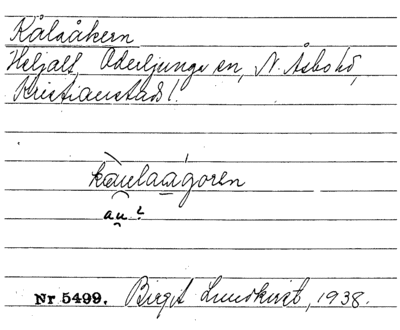 Kålaåkern
Heljalt, Oderljunga sn, N. Åsbo hd,
Kristianstads l.
kaulaagoren
au?
Nr 5499. Birgit Lundkvist, 1938.